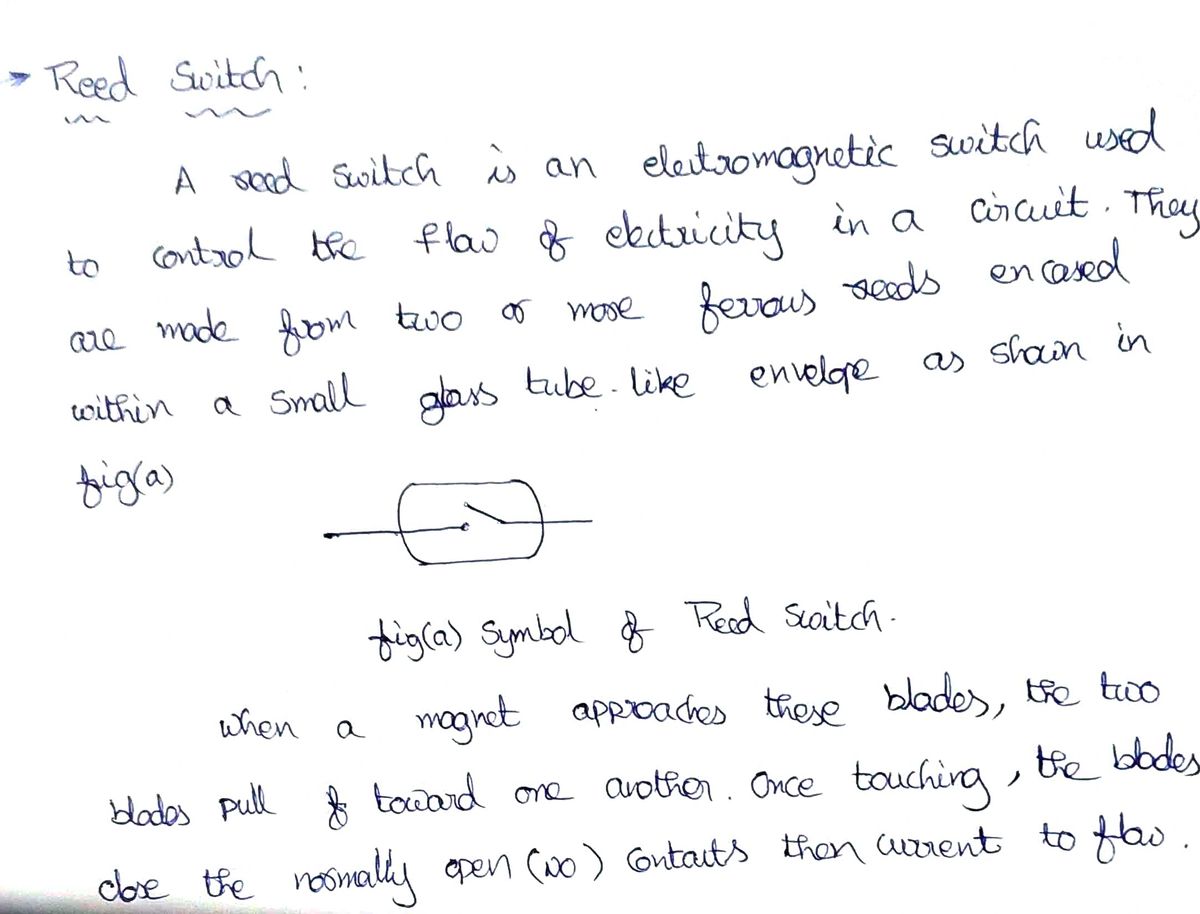 → Reed Switch:
A reed switch is an electromagnetic switch used
to control the flow of electricity in a circuit. They
are made from two or more ferrous reeds encased
within a small glass tube-like envelope as shown in
fig(a)
fig(a) Symbol of Reed Switch.
When a magnet approaches these blades, the two
blades pull of toward one another. Once touching, the blades
close the normally open (NO) Contacts then current to flow.